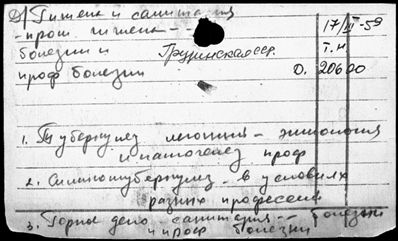 2) Гигиена и санитария
- пром. гигиена - 17/II-59
болезни и Грузинская сср. т. н
проф болезни О. 20600
1. Туберкулез легких - этиология
и патогенез проф
2. Силикотуберкулез - в условиях
разных профессий
3. Горное дело - санитария - болезни
и проф болезни